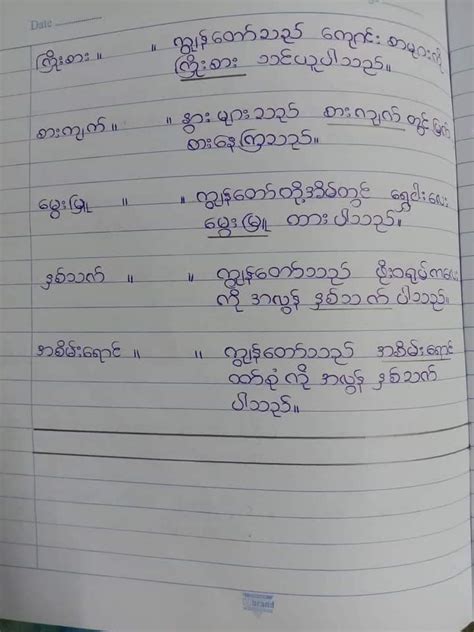 Date ..................
ကြိုးစား ။ ။ ကျွန်တော်သည် ကျောင်း စာများကို
ကြိုးစား သင်ယူပါသည်။
စားကျက် ။ ။ နွားများသည် စားကျက် တွင် မြက်
စားနေကြသည်။
မွေးမြူ ။ ။ ကျွန်တော်တို့အိမ်တွင် ရွှေငါးလေး
မွေးမြူ ထားပါသည်။
နှစ်သက် ။ ။ ကျွန်တော်သည် ဖိုးဝရုပ်ကလေး
ကို အလွန် နှစ်သက်ပါသည်။
အစိမ်းရောင် ။ ။ ကျွန်တော်သည် အစိမ်းရောင်
ထင်္ဘာဆုံကို အလွန် နှစ်သက်
ပါသည်။
brand